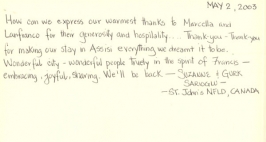 MAY 2, 2003
How can we express our warmest thanks to Marcella and
Lanfranco for their generosity and hospitality... Thank-you - Thank you
for making our stay in Assisi everything we dreamt it to be.
Wonderful city - wonderful people truely in the spirit of Francis -
embracing, joyful, sharing. We'll be back - SUZANNE &
- ST. John's NFLD, CANADA